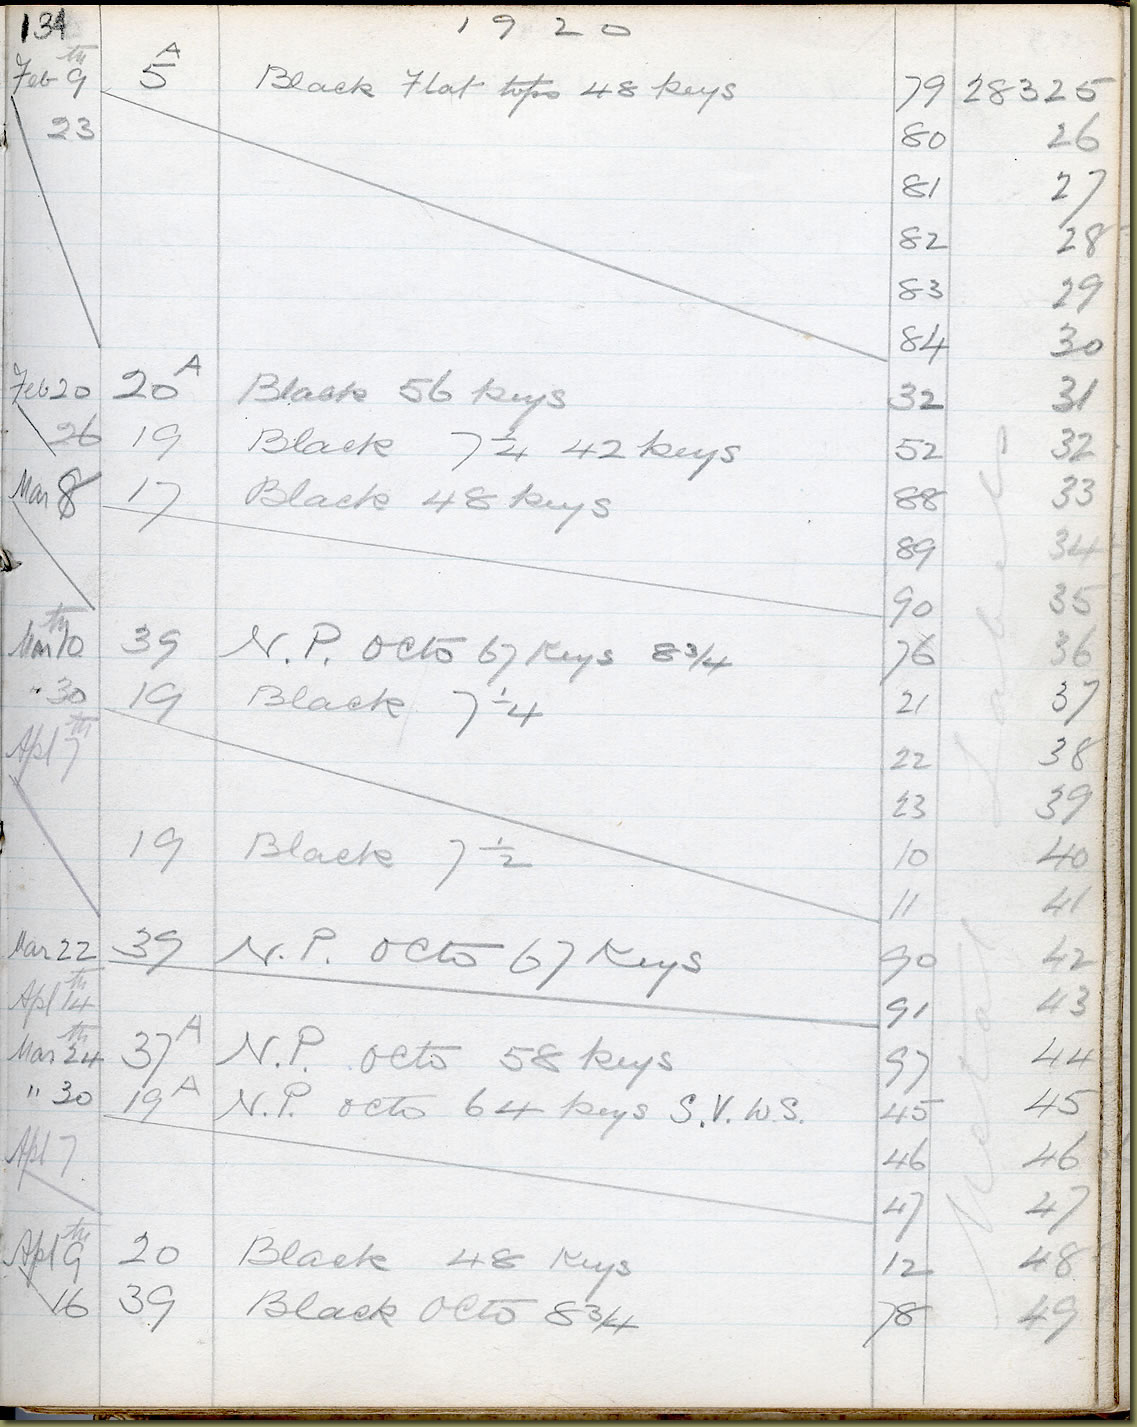 134 1920
Feb 9th 5A Black Flat tops 48 keys 79 28325
23 80 26
81 27
82 28
83 29
84 30
Feb 20 20A Black 56 keys 32 31
26 19 Black 7 1/4 42 keys 52 32
Mar 8 17 Black 48 keys 88 33
89 34
90 35
Mar 10th 39 N.P. Octo 67 Keys 8 3/4 76 36
" 30 19 Black 7 1/4 21 37
Apl 7th 22 38
23 39
19 Black 7 1/2 10 40
11 41
Mar 22 39 N.P. Octo 67 Keys 90 42
Apl 14th 91 43
Mar 24th 37A N.P. Octo 58 keys 97 44
" 30 19A N.P. Octo 64 keys S.V.W.S. 45 45
Apl 7 46 46
47 47
Apl 9th 20 Black 48 Keys 12 48
16 39 Black Octo 8 3/4 78 49
Metal Labels